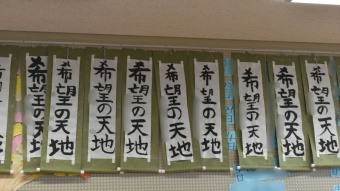 希望の天地
希望の天地
希望の天地
希望の天地
希望の天地
希望の天地
希望の天地
希望の天地